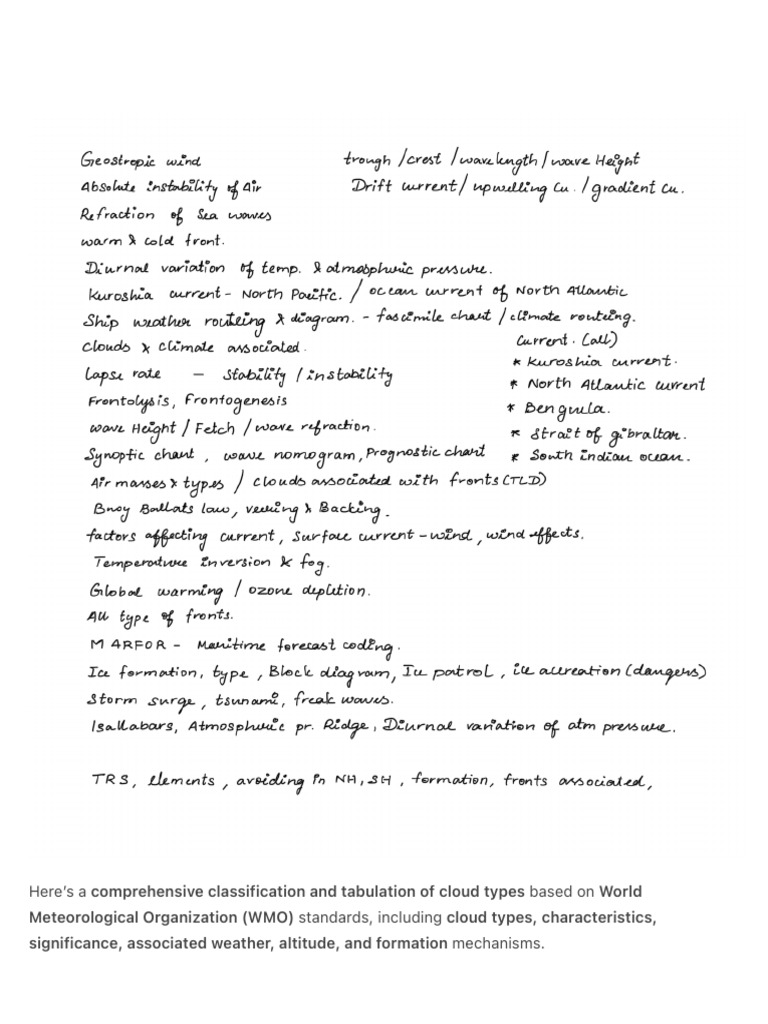 Geostropic wind
trough /crest /wavelength/wave Height
Absolute instability of Air
Drift current/ upwelling cu. /gradient cu.
Refraction of Sea waves
warm & cold front.
Diurnal variation of temp. & atmospheric pressure.
Kuroshia current - North Pacific. / ocean current of North Atlantic
Ship weather routeing & diagram. - fascimile chart / climate routeing.
Clouds & climate associated.
Current. (all)
* Kuroshia current.
Lapse rate - Stability / instability
* North Atlantic current
Frontolysis, Frontogenesis
* Benguela.
wave Height / Fetch / wave refraction.
* Strait of gibraltar.
Synoptic chart, wave nomogram, Prognostic chart
* South indian ocean.
Air masses & types / clouds associated with fronts (TLD)
Buoy Ballats law, veering & Backing.
factors affecting current, surface current - wind, wind effects.
Temperature inversion & fog.
Global warming / ozone depletion.
All type of fronts.
MARFOR - Maritime forecast coding.
Ice formation, type, Block diagram, Ice patrol, ice accreation (dangers)
Storm surge, tsunami, freak waves.
Isallabars, Atmospheric pr. Ridge, Diurnal variation of atm pressure.
TRS, elements, avoiding in NH, SH, formation, fronts associated,
Here's a comprehensive classification and tabulation of cloud types based on World
Meteorological Organization (WMO) standards, including cloud types, characteristics,
significance, associated weather, altitude, and formation mechanisms.